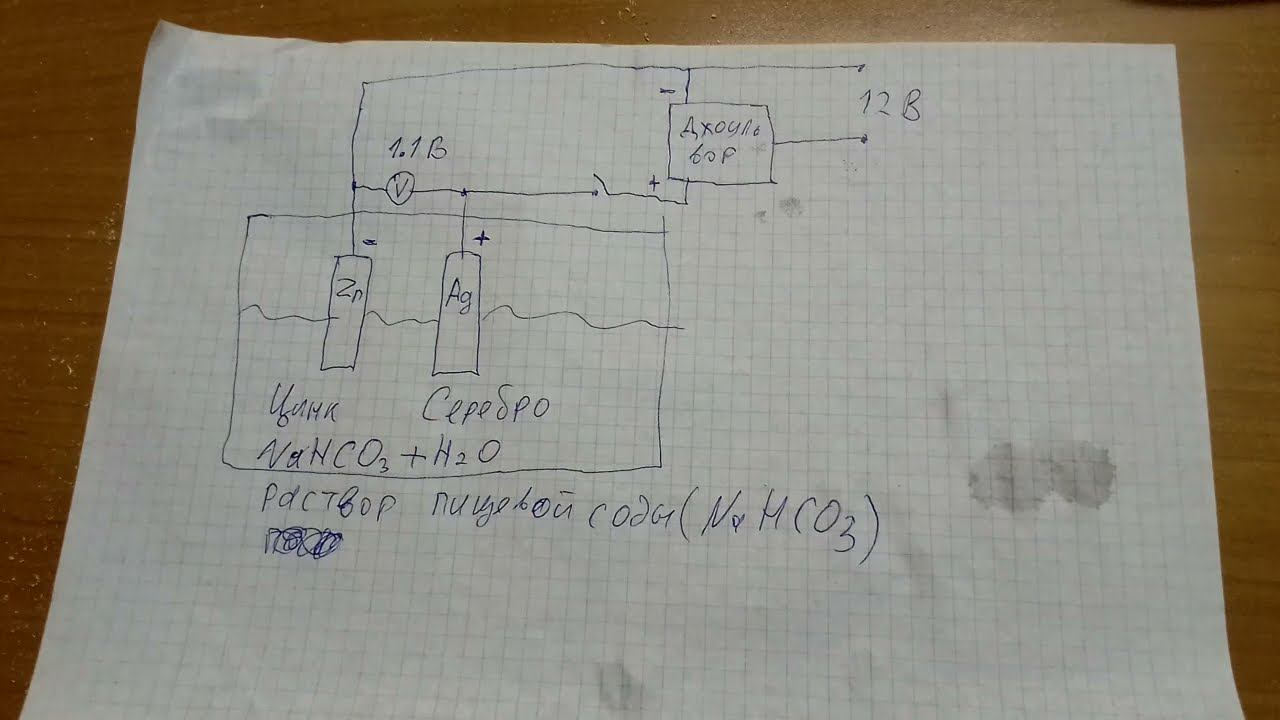 12 В
-
Джоуль
вор
1.1 В
V
+
-
+
Zn
Ag
Цинк Серебро
NaHCO₃ + H₂O
раствор пищевой соды (NaHCO₃)